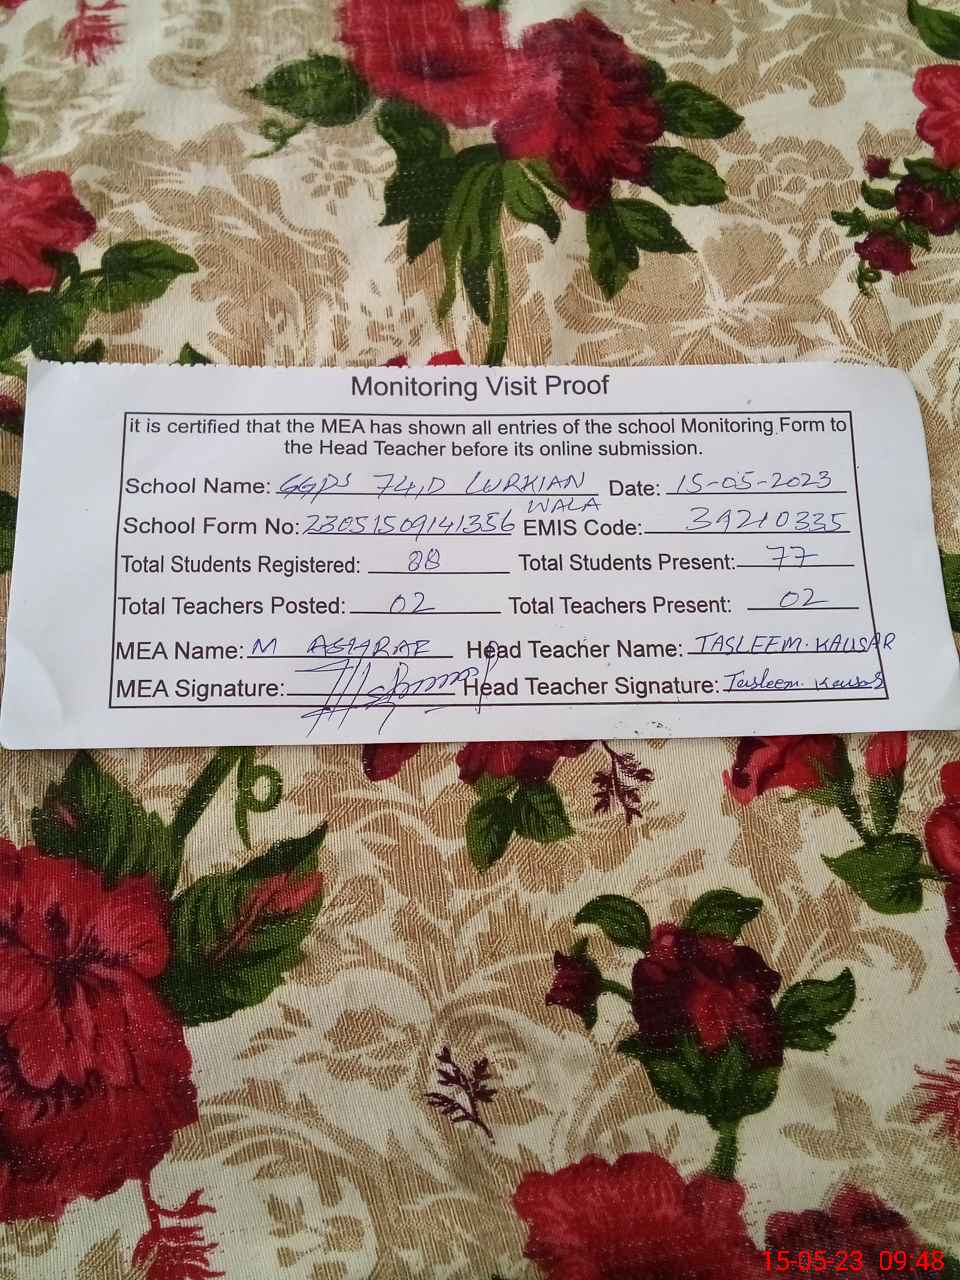 Monitoring Visit Proof
it is certified that the MEA has shown all entries of the school Monitoring Form to
the Head Teacher before its online submission.
School Name: GGPS 74,D LURKIAN WALA Date: 15-05-2023
School Form No: 23051509141356 EMIS Code: 39210335
Total Students Registered: 88 Total Students Present: 77
Total Teachers Posted: 02 Total Teachers Present: 02
MEA Name: M ASHRAF Head Teacher Name: TASLEEM. KAUSAR
MEA Signature: Head Teacher Signature: Tasleem. Kausar
15-05-23 09:48